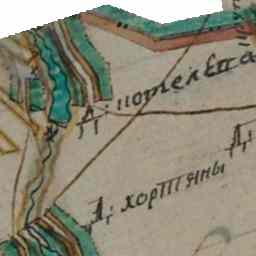 Д: потелепа
Д:
Д: хортяны